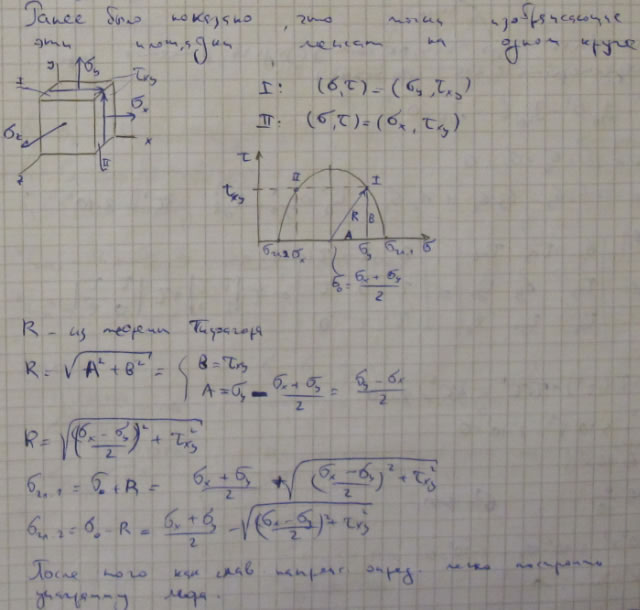 Ранее было показано, что точки изображающие
эти площадки лежат на одном круге
y σy τxy
I
I: (σ,τ) = (σy, τxy)
σx
II: (σ,τ) = (σx, τxy)
σz x
II
z
τ
τxy II I
R B
A
σгл.2 σx σy σгл.1 σ
σ₀ = (σx + σy)/2
R - из теоремы Пифагора
R = √(A² + B²) = { B = τxy
A = σy - (σx + σy)/2 = (σy - σx)/2
R = √(((σx - σy)/2)² + τxy²)
σгл.1 = σ₀ + R = (σx + σy)/2 + √(((σx - σy)/2)² + τxy²)
σгл.2 = σ₀ - R = (σx + σy)/2 - √(((σx - σy)/2)² + τxy²)
После того как глав напряж опред. легко построить
диаграмму Мора.